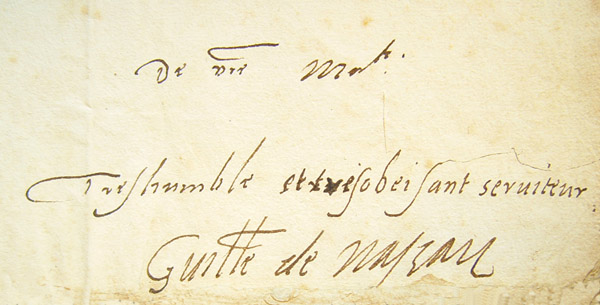 De vre Mate.
Treshumble et tresobeisant serviteur
Guille de nassau